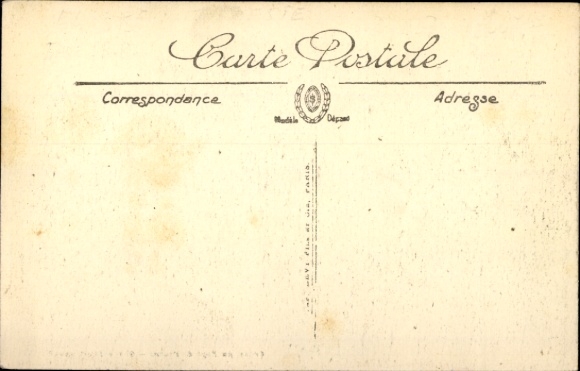 Carte Postale
Correspondance
Adresse
Modèle Déposé
Fils et Cie, PARIS.